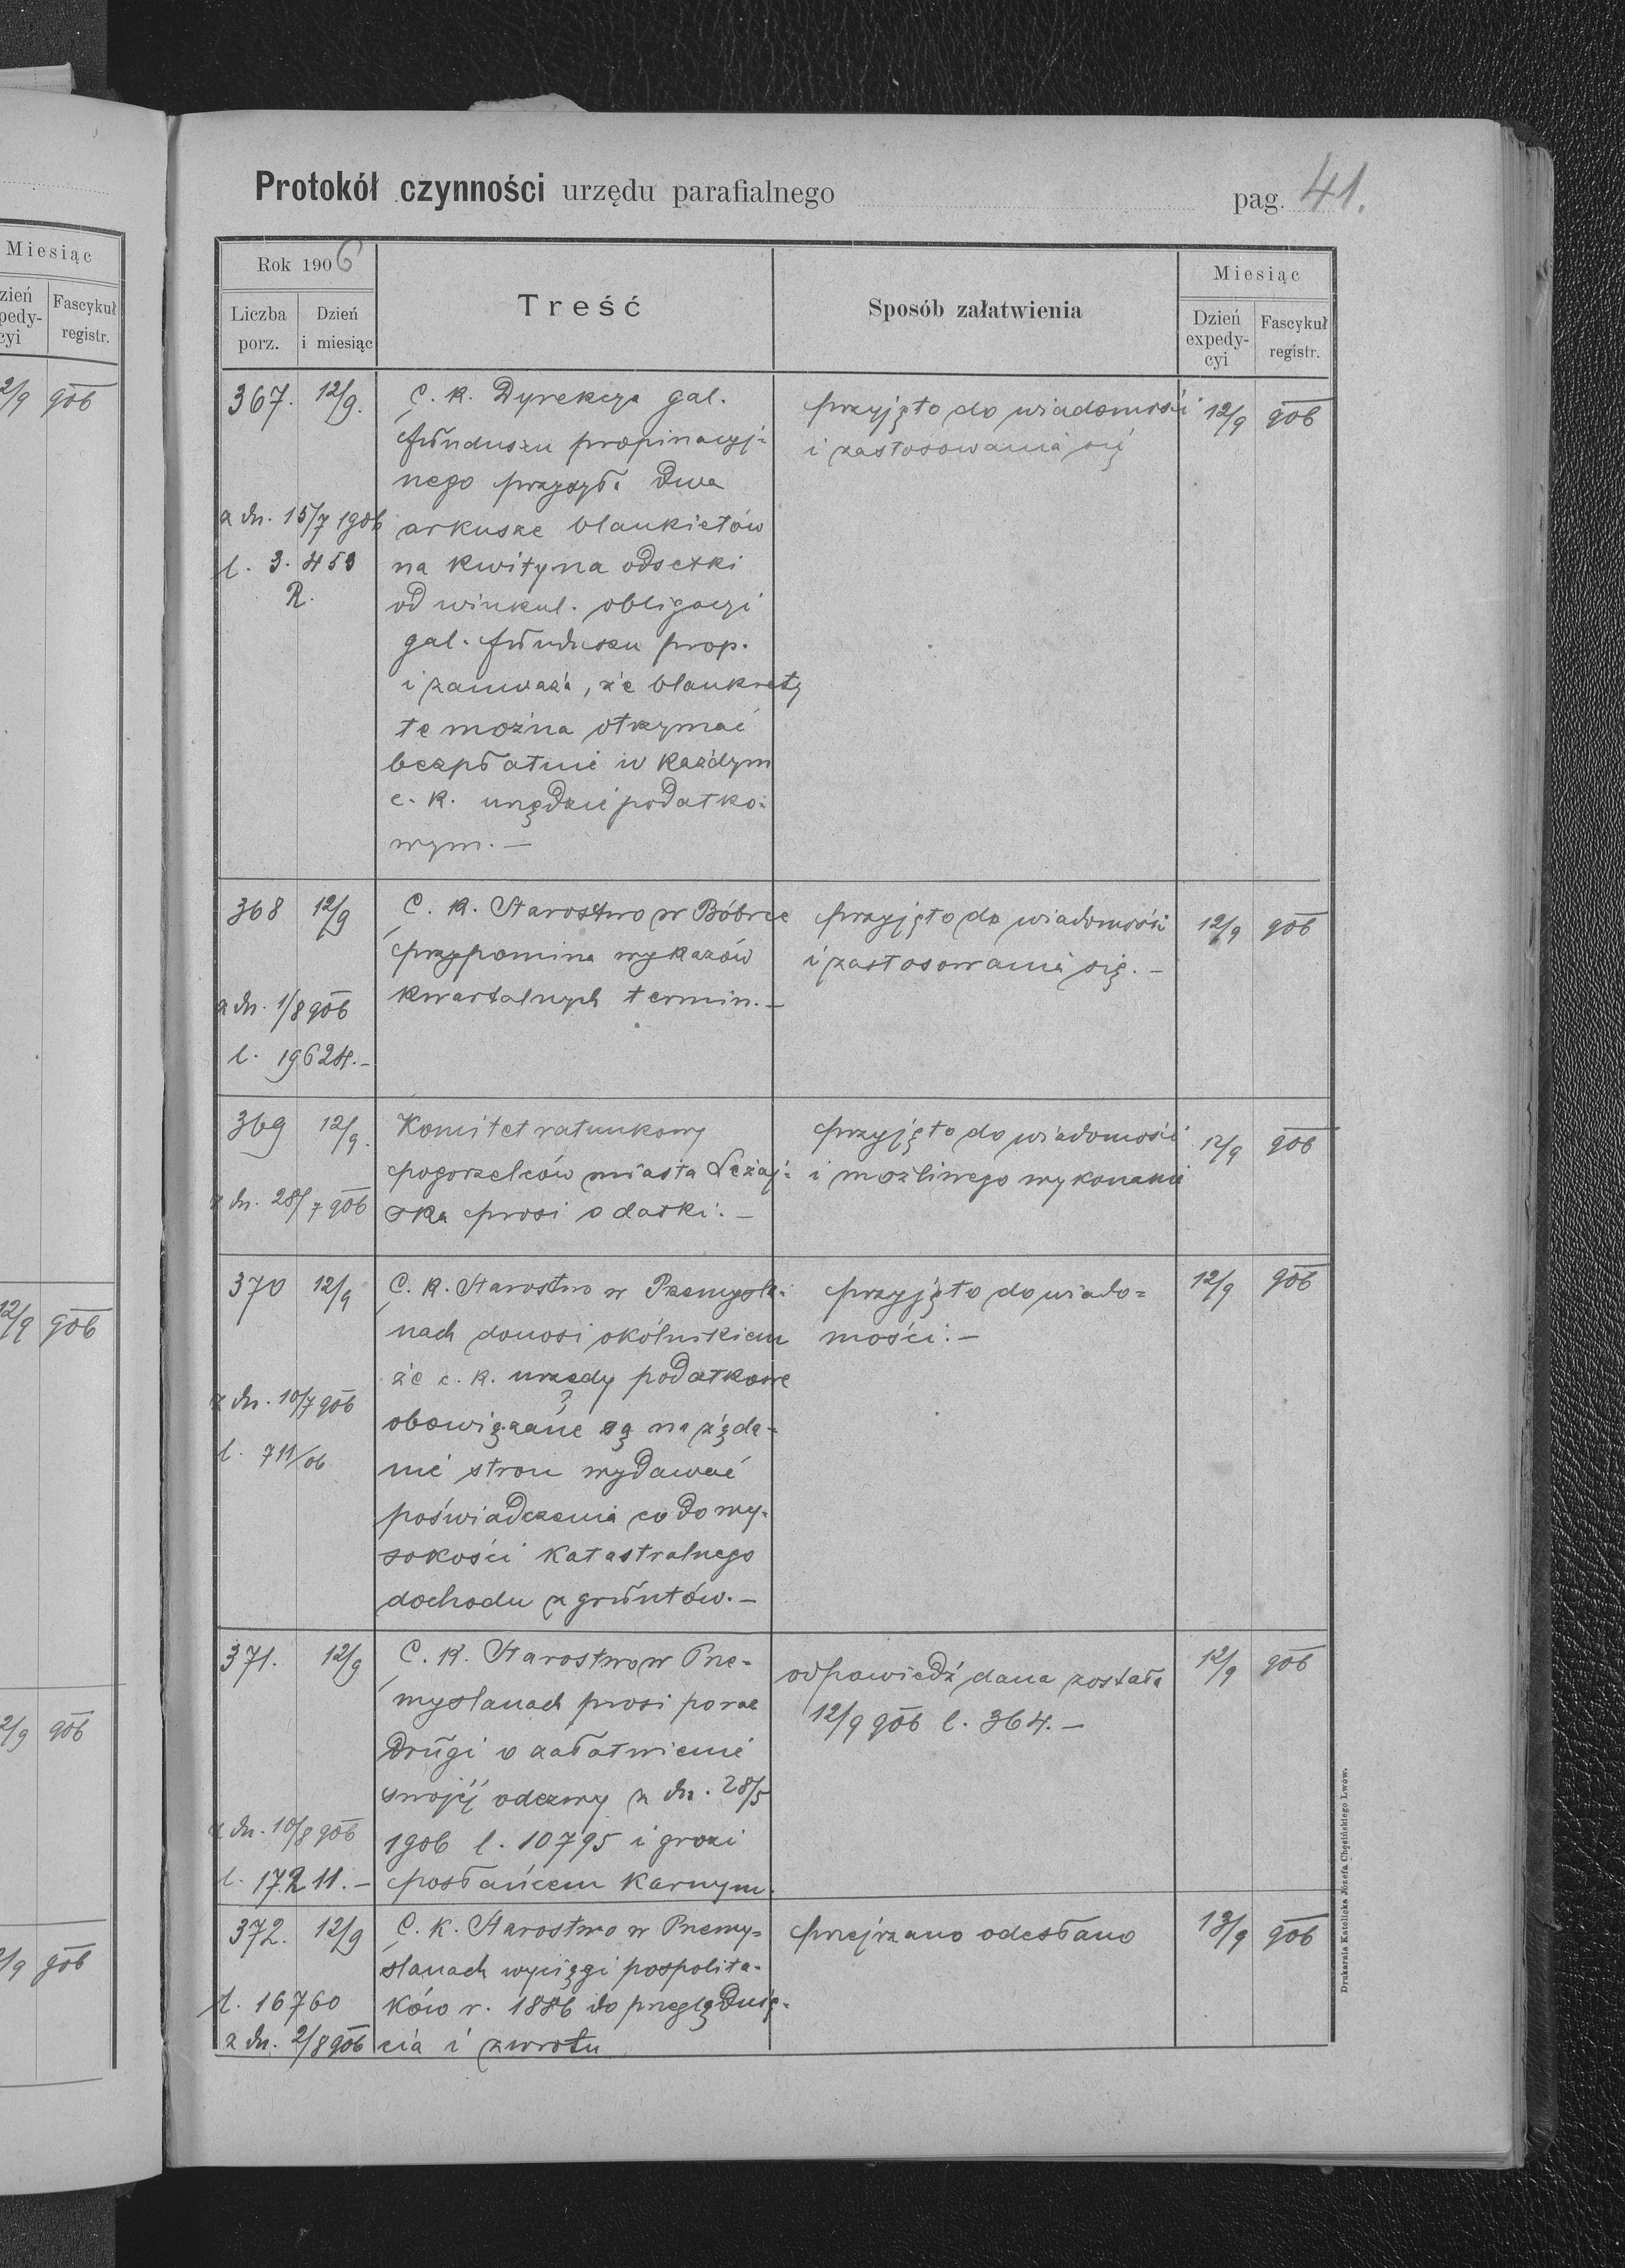 Protokół czynności urzędu parafialnego pag. 41.
Miesiąc
Fascykuł
registr.
2/9 906
12/9 906
2/9 906
2/9 906
Rok 1906
Liczba porz.
Dzień i miesiąc
Treść
Sposób załatwienia
Miesiąc
Dzień expedycyi
Fascykuł registr.
367. 12/9.
z dn. 15/7 1906
l. 3.453
R.
C. k. Dyrekcya gal.
funduszu propinacyj-
nego przysyła dwa
arkusze blankietów
na kwity na odsetki
od winkul. obligacyi
gal. funduszu prop.
i zauważa, że blankiety
te można otrzymać
bezpłatnie w każdym
c. k. urzędzie podatko-
wym. —
przyjęto do wiadomości
i zastosowania się
12/9 906
368 12/9
z dn. 1/8 906
l. 19624. -
C. k. Starostwo w Bóbrce
przypomina wykazów
kwartalnych termin. -
przyjęto do wiadomości
i zastosowania się. -
12/9 906
369 12/9.
z dn. 28/7 906
Komitet ratunkowy
pogorzelców miasta Leżaj-
ska prosi o datki. -
przyjęto do wiadomości
i możliwego wykonania
12/9 906
370 12/9
z dn. 10/7 906
l. 711/06
C. k. Starostwo w Przemyśla-
nach donosi okólnikiem
że c. k. urzędy podatkowe
obowiązane są na żąda-
nie stron wydawać
poświadczenia co do wy-
sokości katastralnego
dochodu z gruntów. -
przyjęto do wiado-
mości. -
12/9 906
371. 12/9
z dn. 10/8 906
l. 17211. -
C. k. Starostwo w Prze-
myślanach prosi po raz
drugi o załatwienie
swojéj odezwy z dn. 28/5
1906 l. 10795 i grozi
posłańcem karnym.
odpowiedź dana została
12/9 906 l. 364. -
12/9 906
372. 12/9
l. 16760
z dn. 2/8 906
C. k. Starostwo w Przemy-
ślanach wyciągi pospolita-
ków r. 1886 do przeglądnię-
cia i zwrotu
przejrzano odesłano
13/9 906
Drukarnia Katolicka Józefa Chęcińskiego Lwów.